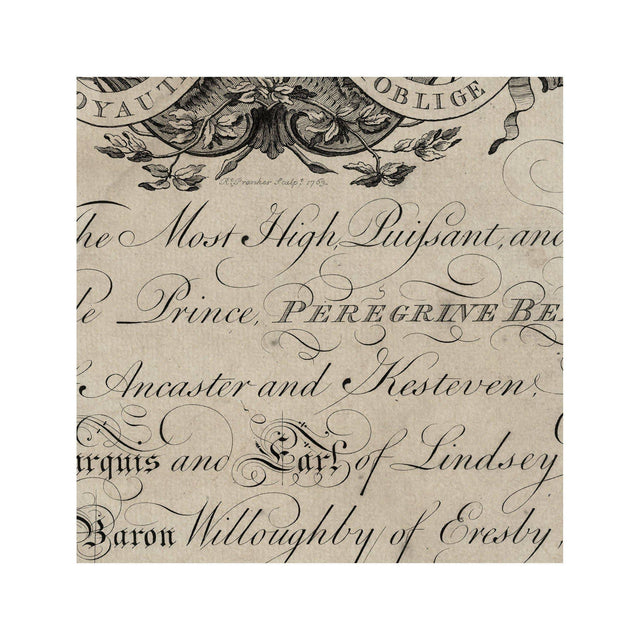 OYAUT OBLIGE
R. Pranker Sculp.t 176
he Most High, Puiſsant, and
le Prince, PEREGRINE BE
Ancaster and Kesteven,
arquis and Earl of Lindsey
Baron Willoughby of Eresby,